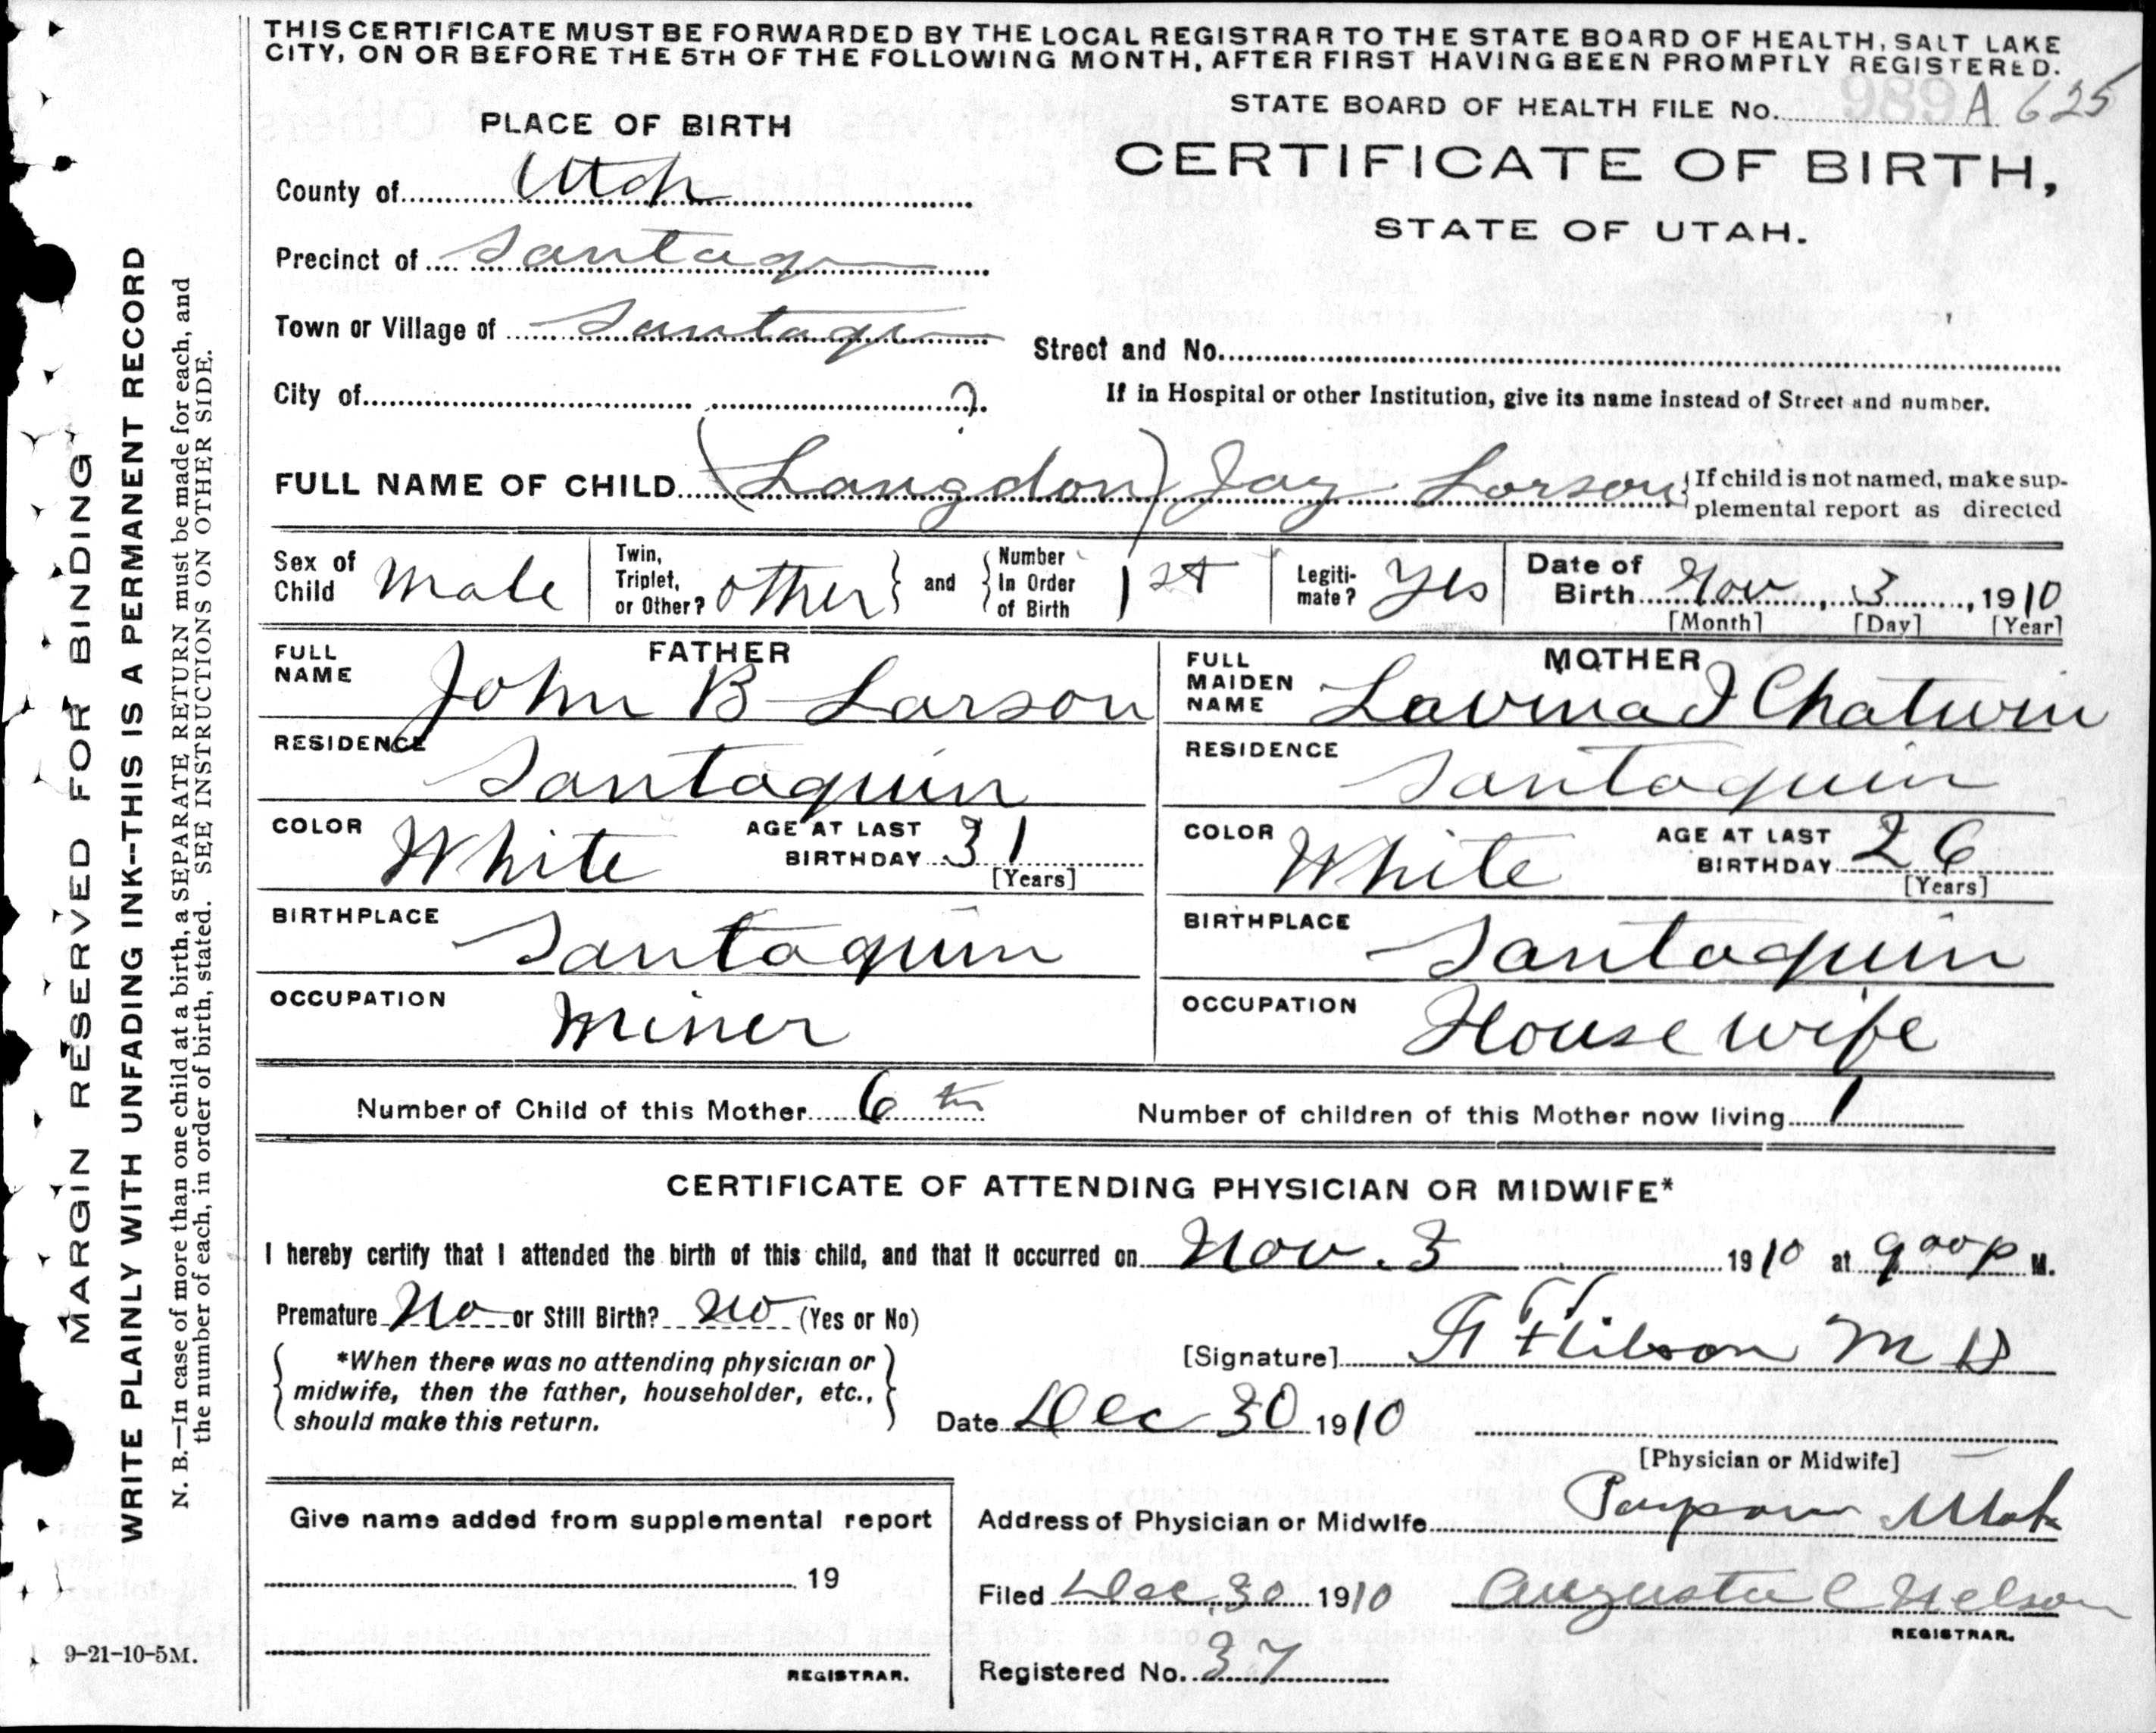 THIS CERTIFICATE MUST BE FORWARDED BY THE LOCAL REGISTRAR TO THE STATE BOARD OF HEALTH, SALT LAKE
CITY, ON OR BEFORE THE 5TH OF THE FOLLOWING MONTH, AFTER FIRST HAVING BEEN PROMPTLY REGISTERED.
STATE BOARD OF HEALTH FILE No. 989 A 625
PLACE OF BIRTH
CERTIFICATE OF BIRTH,
STATE OF UTAH.
County of Utah
Precinct of Santaq
Town or Village of Santaqu
Street and No.
City of ?
If in Hospital or other Institution, give its name instead of Street and number.
FULL NAME OF CHILD (Langdon) Jay Larson {If child is not named, make sup-
plemental report as directed
Sex of Child Male
Twin, Triplet, or Other? other } and { Number In Order of Birth 1st
Legiti-mate? Yes
Date of Birth Nov, 3, 1910
[Month] [Day] [Year]
FATHER
FULL NAME John B Larson
RESIDENCE Santaquin
COLOR White AGE AT LAST BIRTHDAY 31
[Years]
BIRTHPLACE Santaquin
OCCUPATION Miner
MOTHER
FULL MAIDEN NAME Lavina J Chatwin
RESIDENCE Santaquin
COLOR White AGE AT LAST BIRTHDAY 26
[Years]
BIRTHPLACE Santaquin
OCCUPATION House wife
Number of Child of this Mother 6 th
Number of children of this Mother now living 1
CERTIFICATE OF ATTENDING PHYSICIAN OR MIDWIFE*
I hereby certify that I attended the birth of this child, and that it occurred on Nov. 3 1910 at 9 00 P M.
Premature No or Still Birth? No (Yes or No)
*When there was no attending physician or
midwife, then the father, householder, etc.,
should make this return.
[Signature] M D
Date Dec 30 1910
[Physician or Midwife]
Give name added from supplemental report
19
REGISTRAR.
Address of Physician or Midwife Payson Utah
Filed Dec. 30 1910 Augusta C Nelson
REGISTRAR.
Registered No. 37
MARGIN RESERVED FOR BINDING
WRITE PLAINLY WITH UNFADING INK--THIS IS A PERMANENT RECORD
N. B.—In case of more than one child at a birth, a SEPARATE RETURN must be made for each, and
the number of each, in order of birth, stated. SEE INSTRUCTIONS ON OTHER SIDE.
9-21-10-5M.